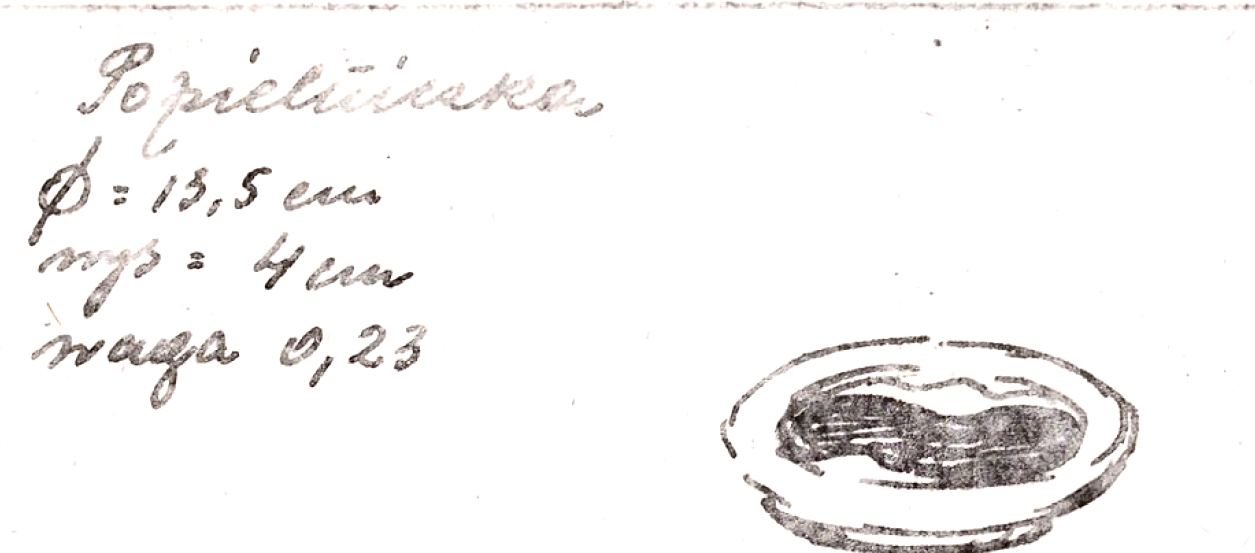 Popielniczka
φ = 13,5 cm
wys = 4 cm
waga 0,23